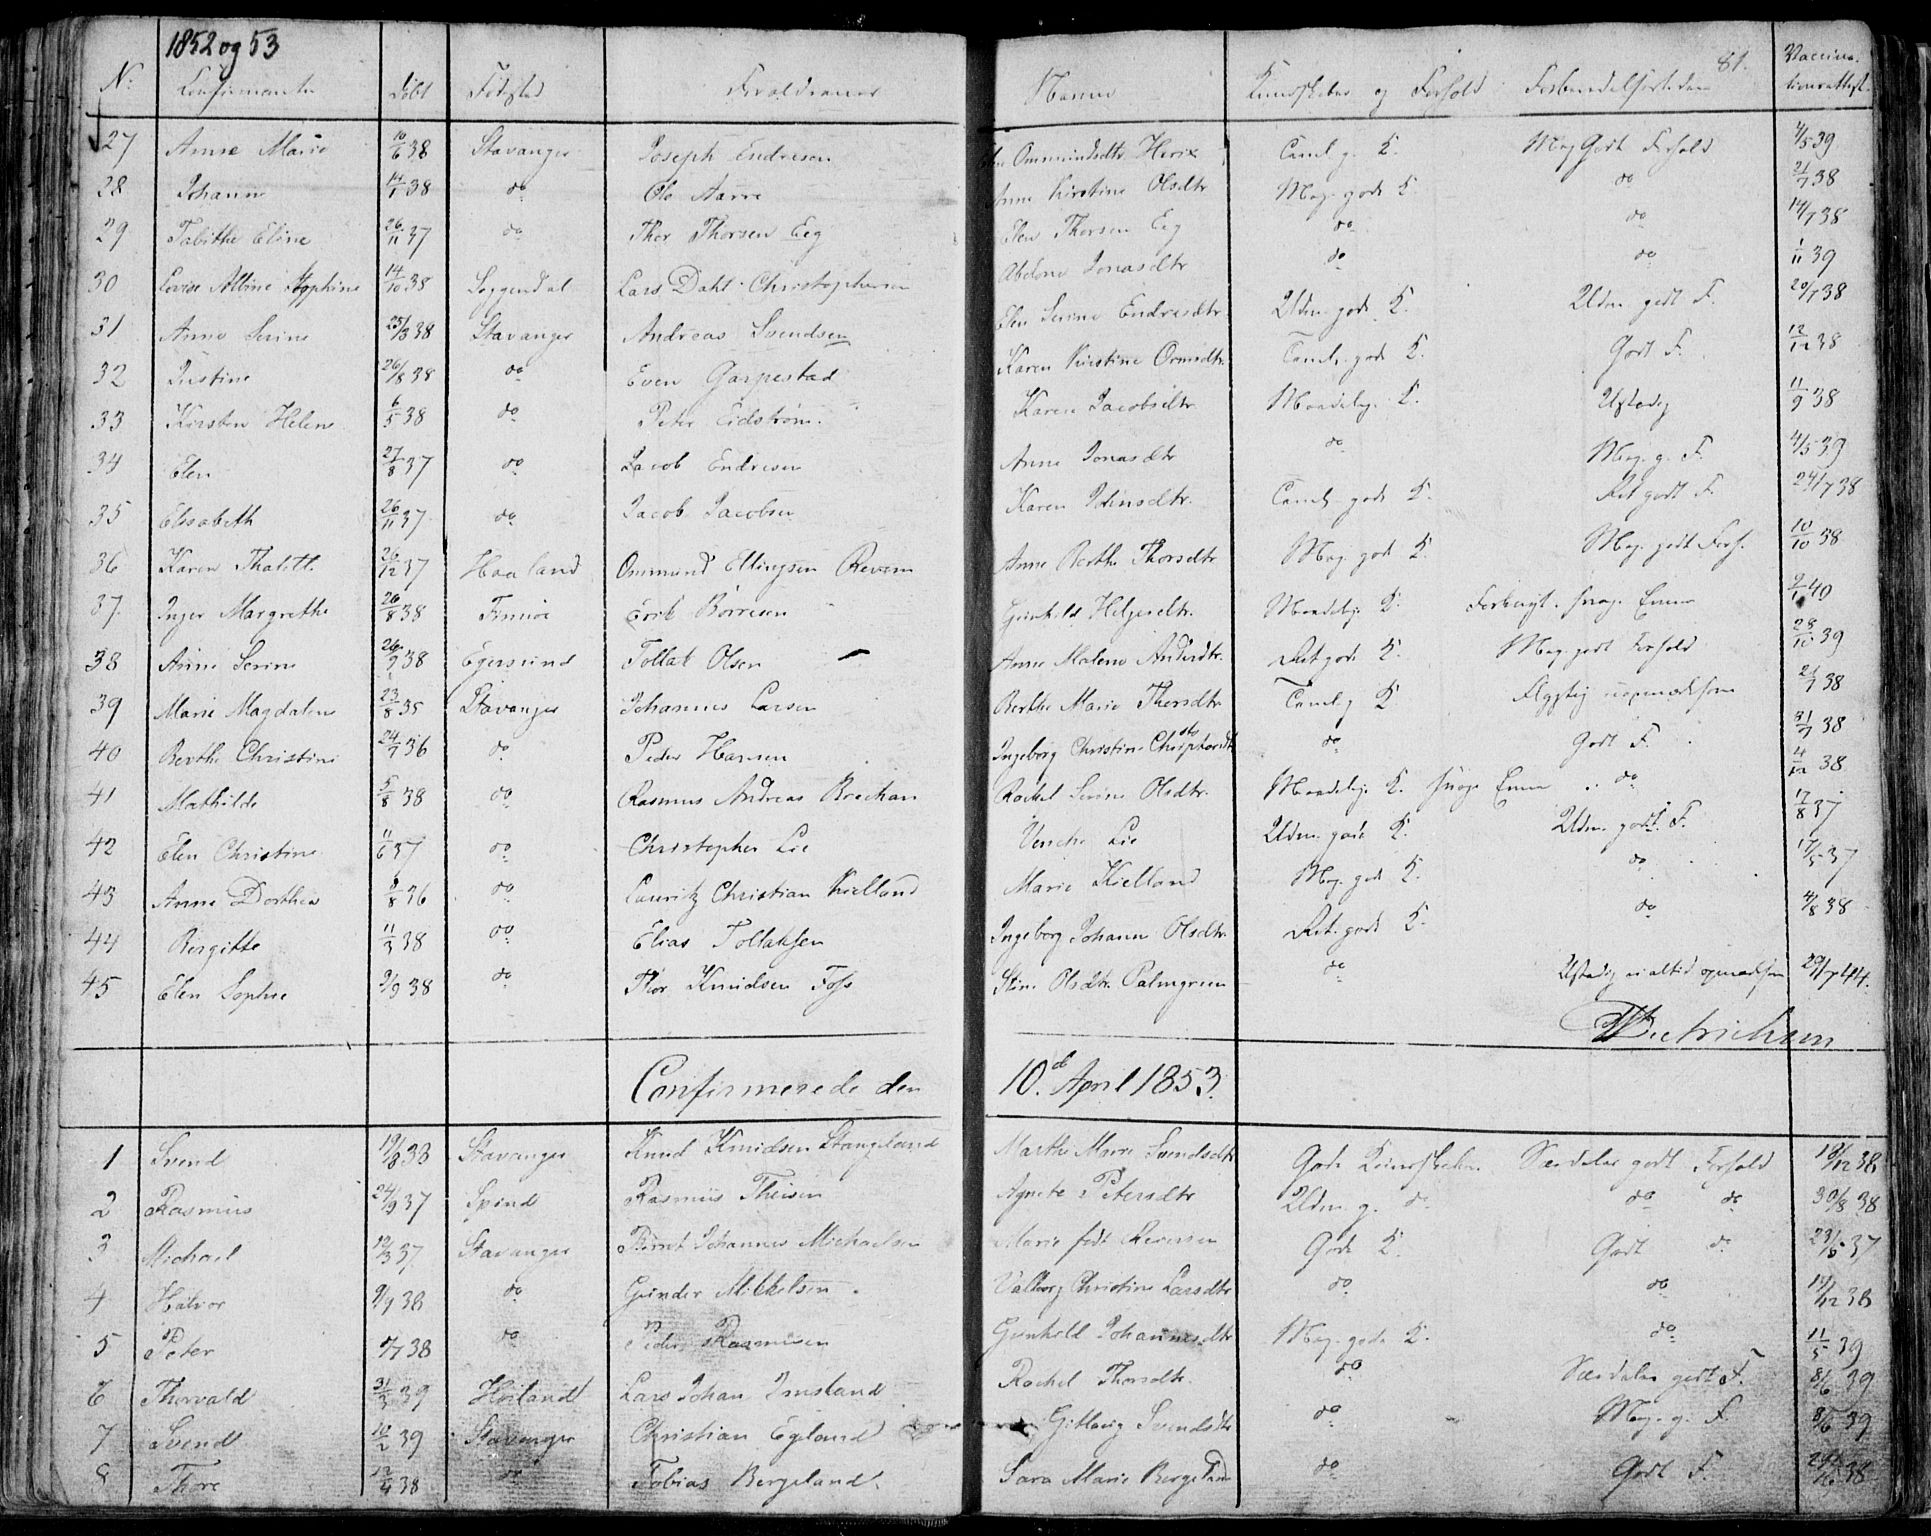 1852 og 53
81.
No Confirmanter Døbt Fødested Forældrenes Navne Kundskaber og Forhold Vaccina-
tionsattest.
27 Anne Marie 10/6 38 Stavanger Joseph Endresen Ommundsdtr Herix Taml. g. K. Meg. Godt Forhold 4/5 39
28 Johanne 14/1 38 do Ole Aarre Anne Kirstine Olsdtr Meg. gode K. do 21/7 38
29 Tabithe Eline 26/11 37 do Thor Thorsen Eeg Elen Thorsen Eeg do do 14/7 38
30 Lovise Albine Josephine 14/10 38 Soggendal Lars Dahl Christophersen Abelone Jonasdtr do do 1/11 39
31 Anne Serine 25/3 38 Stavanger Andreas Svendsen Elen Serine Endresdtr Udm. gode K. Udm. godt F. 20/7 38
32 Justine 26/8 38 do Even Garpestad Karen Kirstine Ormsdtr. Taml. gode K. Godt F. 12/12 38
33 Kirsten Helene 6/5 38 do Peter Eidstrøm. Karen Jacobsdtr. Maadelig K. Ustadig 11/9 38
34 Elen 27/8 37 do Jacob Endresen Anne Jonasdtr do Meg. g. F. 4/5 39
35 Elisabeth 26/11 37 do Jacob Jacobsen Karen Taml. gode K. Ret godt F. 24/7 38
36 Karen Thalette 26/12 37 Haaland Ommund Ellingsen Revem Anne Berthe Thorsdtr Meg. gode K. Meg. godt Forh. 10/10 38
37. Inger Margrethe 26/8 38 Erik Børresen Gunhild Helgesdtr. Maadelig K. 2/1 40
38 Anne Serine 26/9 38 Egersund Tollak Olsen Anne Malene Ret gode K. Meg. godt Forhold 23/10 39
39 Marie Magdalene 23/8 35 Stavanger Johannes Larsen Berthe Marie Thorsdtr Taml. g K 21/7 38
40 Berthe Christine 24/7 36 do Peder Hansen Ingeborg Christine do Godt F. 31/7 38
41 Mathilde 5/8 38 do Rasmus Andreas Brechan Rachel Serine Olsdtr. Maadelig K. do 4/12 38
42 Elen Christine 11/6 37 do Christopher Lie Venche Lie Udm. gode K. Udm. godt. F. 17/8 37
43 Anne Dorthea 2/8 36 do Lauritz Christian Kielland Marie Kielland Meg. gode K. do 17/5 37
44 Bergitte 11/3 38 do Elias Tollaksen Ingeborg Johanne Olsdtr. Ret. gode K. do 4/8 38
45 Elen Sophie 2/9 38 do Thor Knudsen Foss Stine Olsdtr. Palmgreen do Ustadig ei altid opmærksom 29/7 44.
Dietrichson
Confirmerede den 10.de April 1853.
1 Svend 19/8 38 Stavanger Knud Knudsen Stangeland Marthe Marie Svendsdtr Gode Kundskaber. Særdeles godt Forhold 18/12 38
2 Rasmus 24/9 37 Spind Rasmus Theisen Agnete Petersdtr Udm. g. do do do 30/8 38
3 Michael 12/3 37 Stavanger Berent Johannes Michaelsen Marie født Gode K. Godt do 23/6 37
4 Halvor 9/9 38 do Gunder Mikkelsen. Valborg Christine Larsdtr do do 14/12 38
5 Peter 38 do Peder Rasmusen Gunhild Johannesdtr Meg. gode K. do 11/5 39
6 Thorvald 31/3 39 Høiland Lars Johan Imsland Rachel Thorsdtr. do Særdeles godt F. 8/6 39
7 Svend 10/2 39 Stavanger Christian Egeland Gitlaug Svendsdtr do Meg. g. F. 8/6 39
8 Thore 12/4 38 do Tobias Bergeland. Sara Marie Bergeland do Godt F. 38